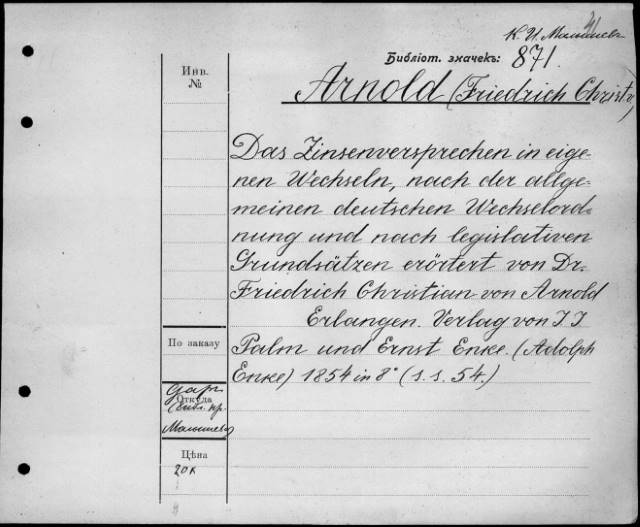 К. И. Малышевъ
Библіот. значекъ: 871.
Инв.
№
Arnold (Friedrich Christ. v.)
Das Zinsenversprechen in eige-
nen Wechseln, nach der allge-
meinen deutschen Wechselord-
nung und nach legislativen
Grundsätzen erörtert von Dr.
Friedrich Christian von Arnold
Erlangen. Verlag von J. J.
Palm und Ernst Enke. (Adolph
Enke) 1854 in 8° (s. s. 54.)
По заказу
Откуда
Даръ
Малышева
Цѣна
20 к